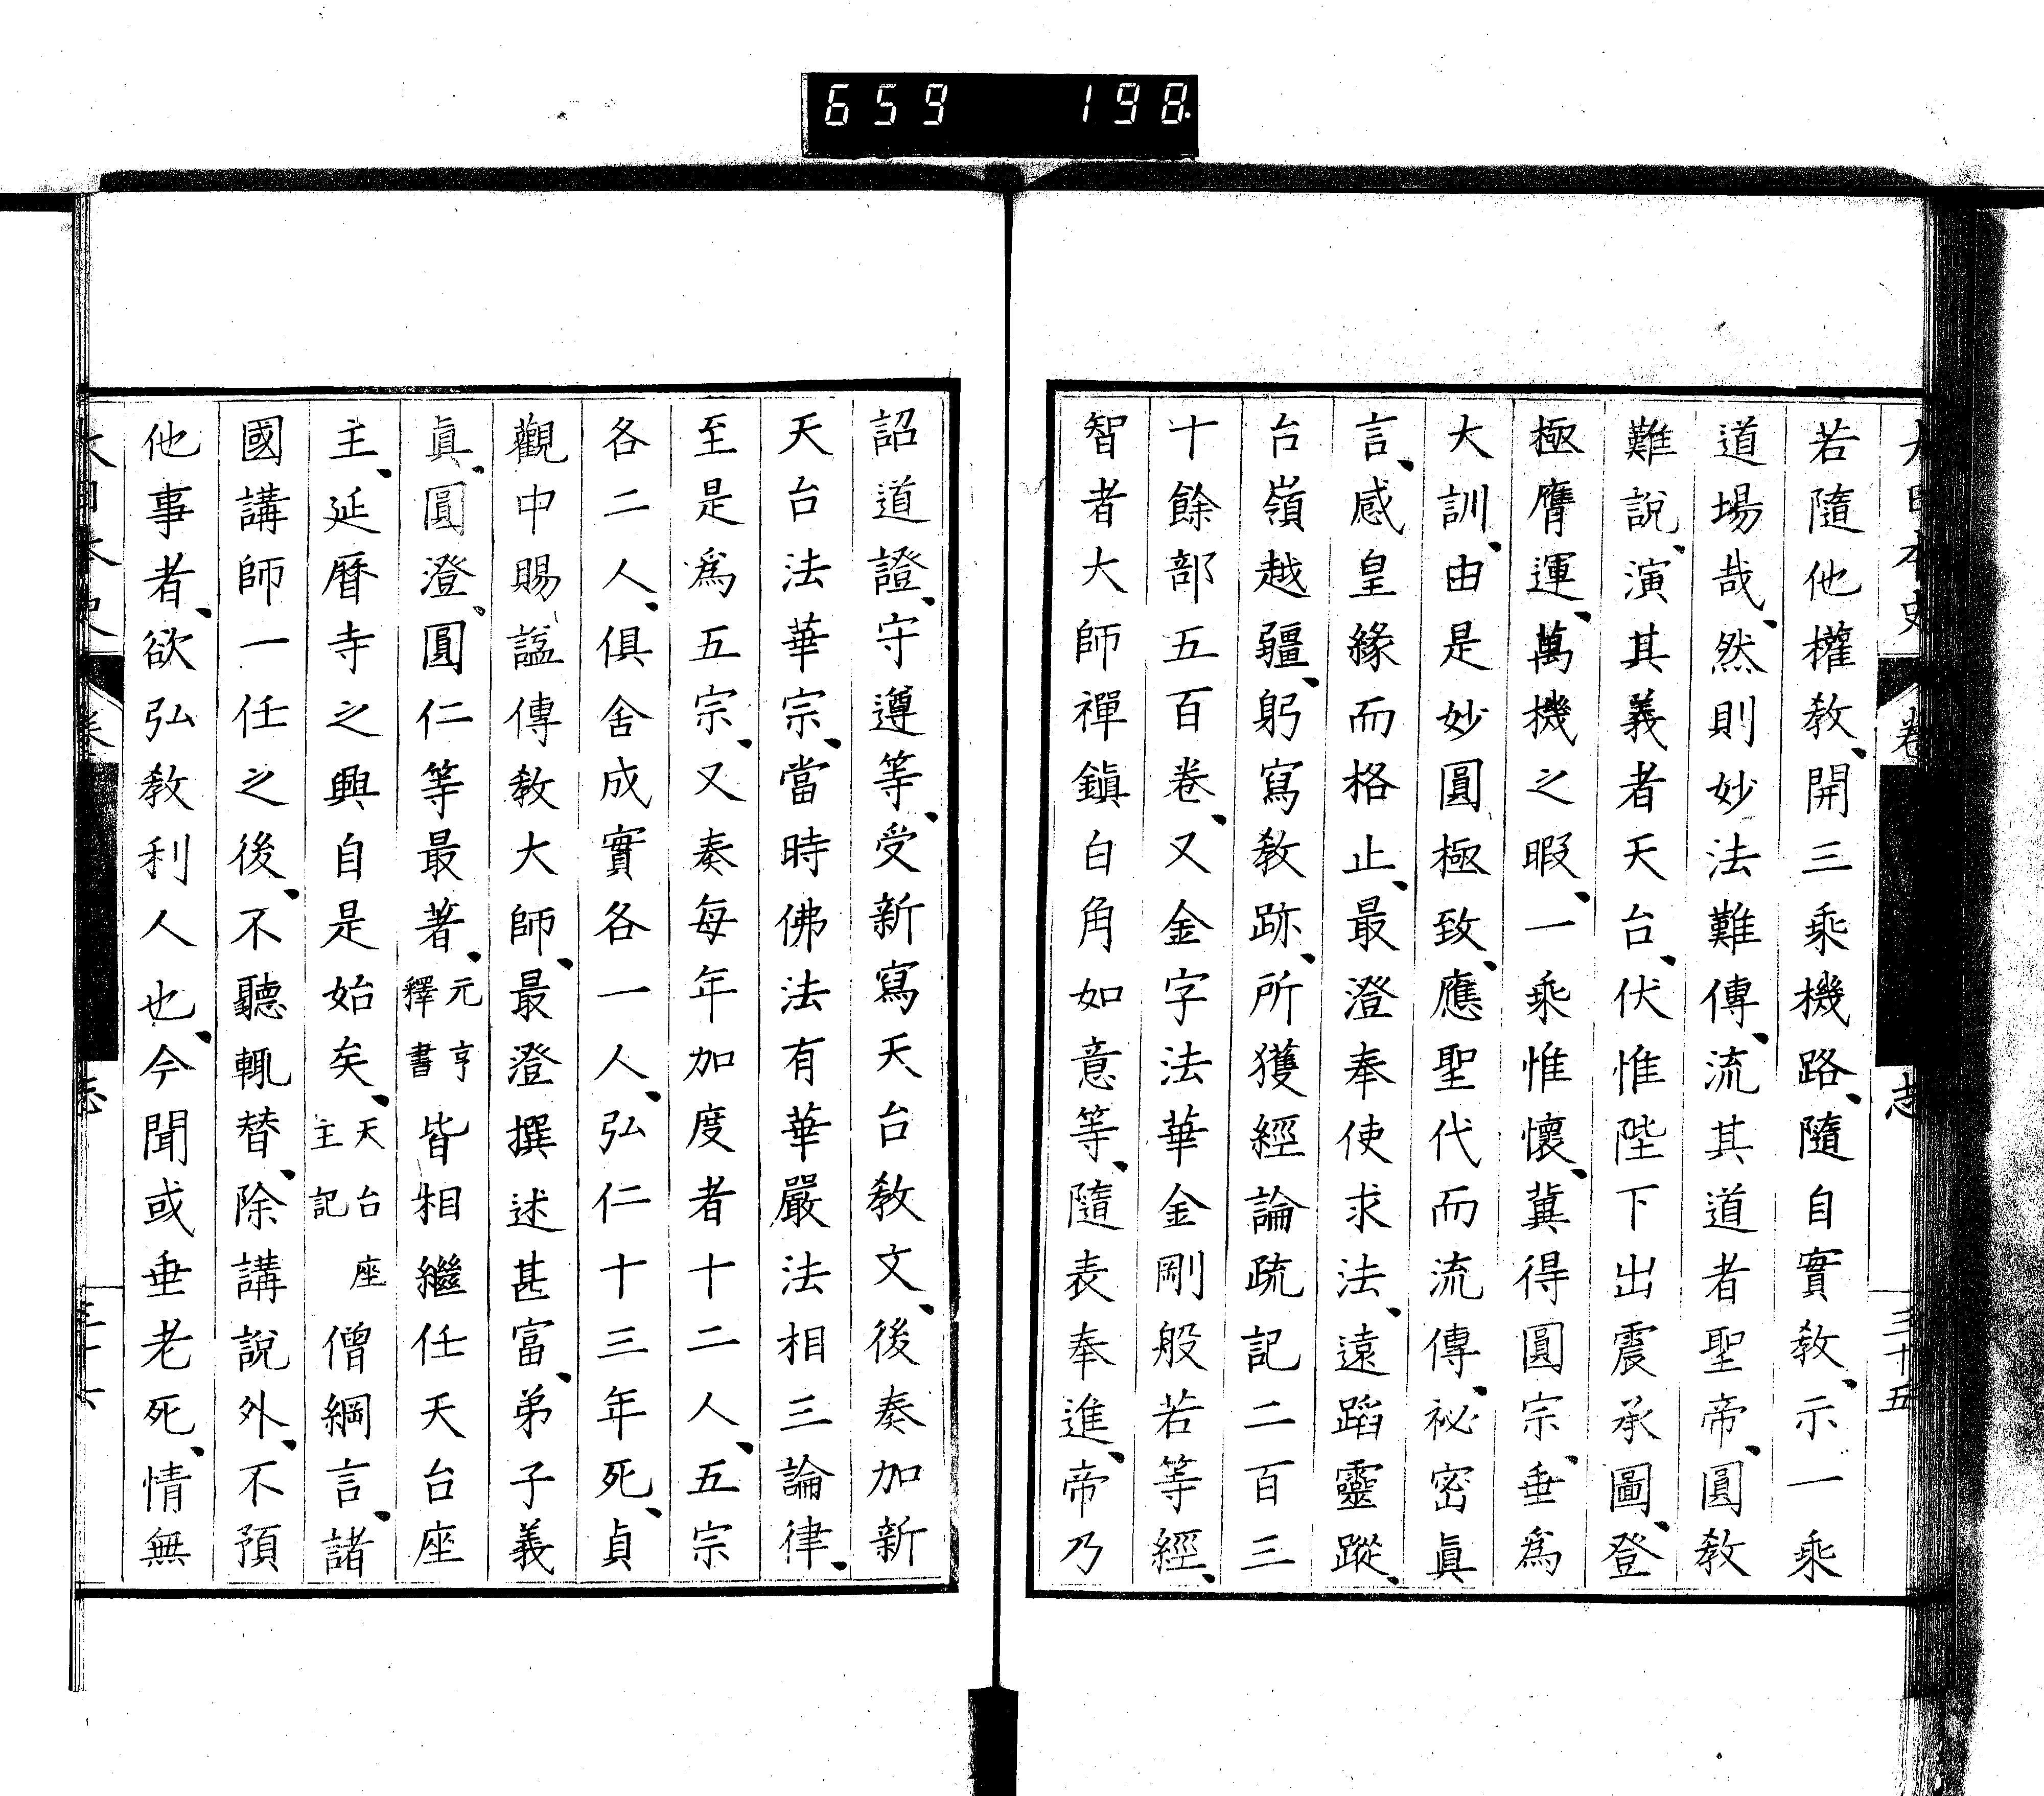 659 198
大日本史 卷 志 三十五
若隨他權教、開三乘機路、隨自實教、示一乘
道場哉、然則妙法難傳、流其道者聖帝、圓教
難說、演其義者天台、伏惟陛下出震承圖、登
極膺運、萬機之暇、一乘惟懷、冀得圓宗、垂爲
大訓、由是妙圓極致、應聖代而流傳、祕密眞
言、感皇緣而格止、最澄奉使求法、遠蹈靈蹤、
台嶺越疆、躬寫教跡、所獲經論疏記二百三
十餘部五百卷、又金字法華金剛般若等經、
智者大師禪鎭白角如意等、隨表奉進、帝乃
詔道證、守遵等、受新寫天台教文、後奏加新
天台法華宗、當時佛法有華嚴法相三論律、
至是爲五宗、又奏每年加度者十二人、五宗
各二人、俱舍成實各一人、弘仁十三年死、貞
觀中賜謚傳教大師、最澄撰述甚富、弟子義
眞、圓澄、圓仁等最著、元亨釋書皆相繼任天台座
主、延曆寺之興自是始矣、天台座主記僧綱言、諸
國講師一任之後、不聽輒替、除講說外、不預
他事者、欲弘教利人也、今聞或垂老死、情無
大日本史 卷 志 三十六